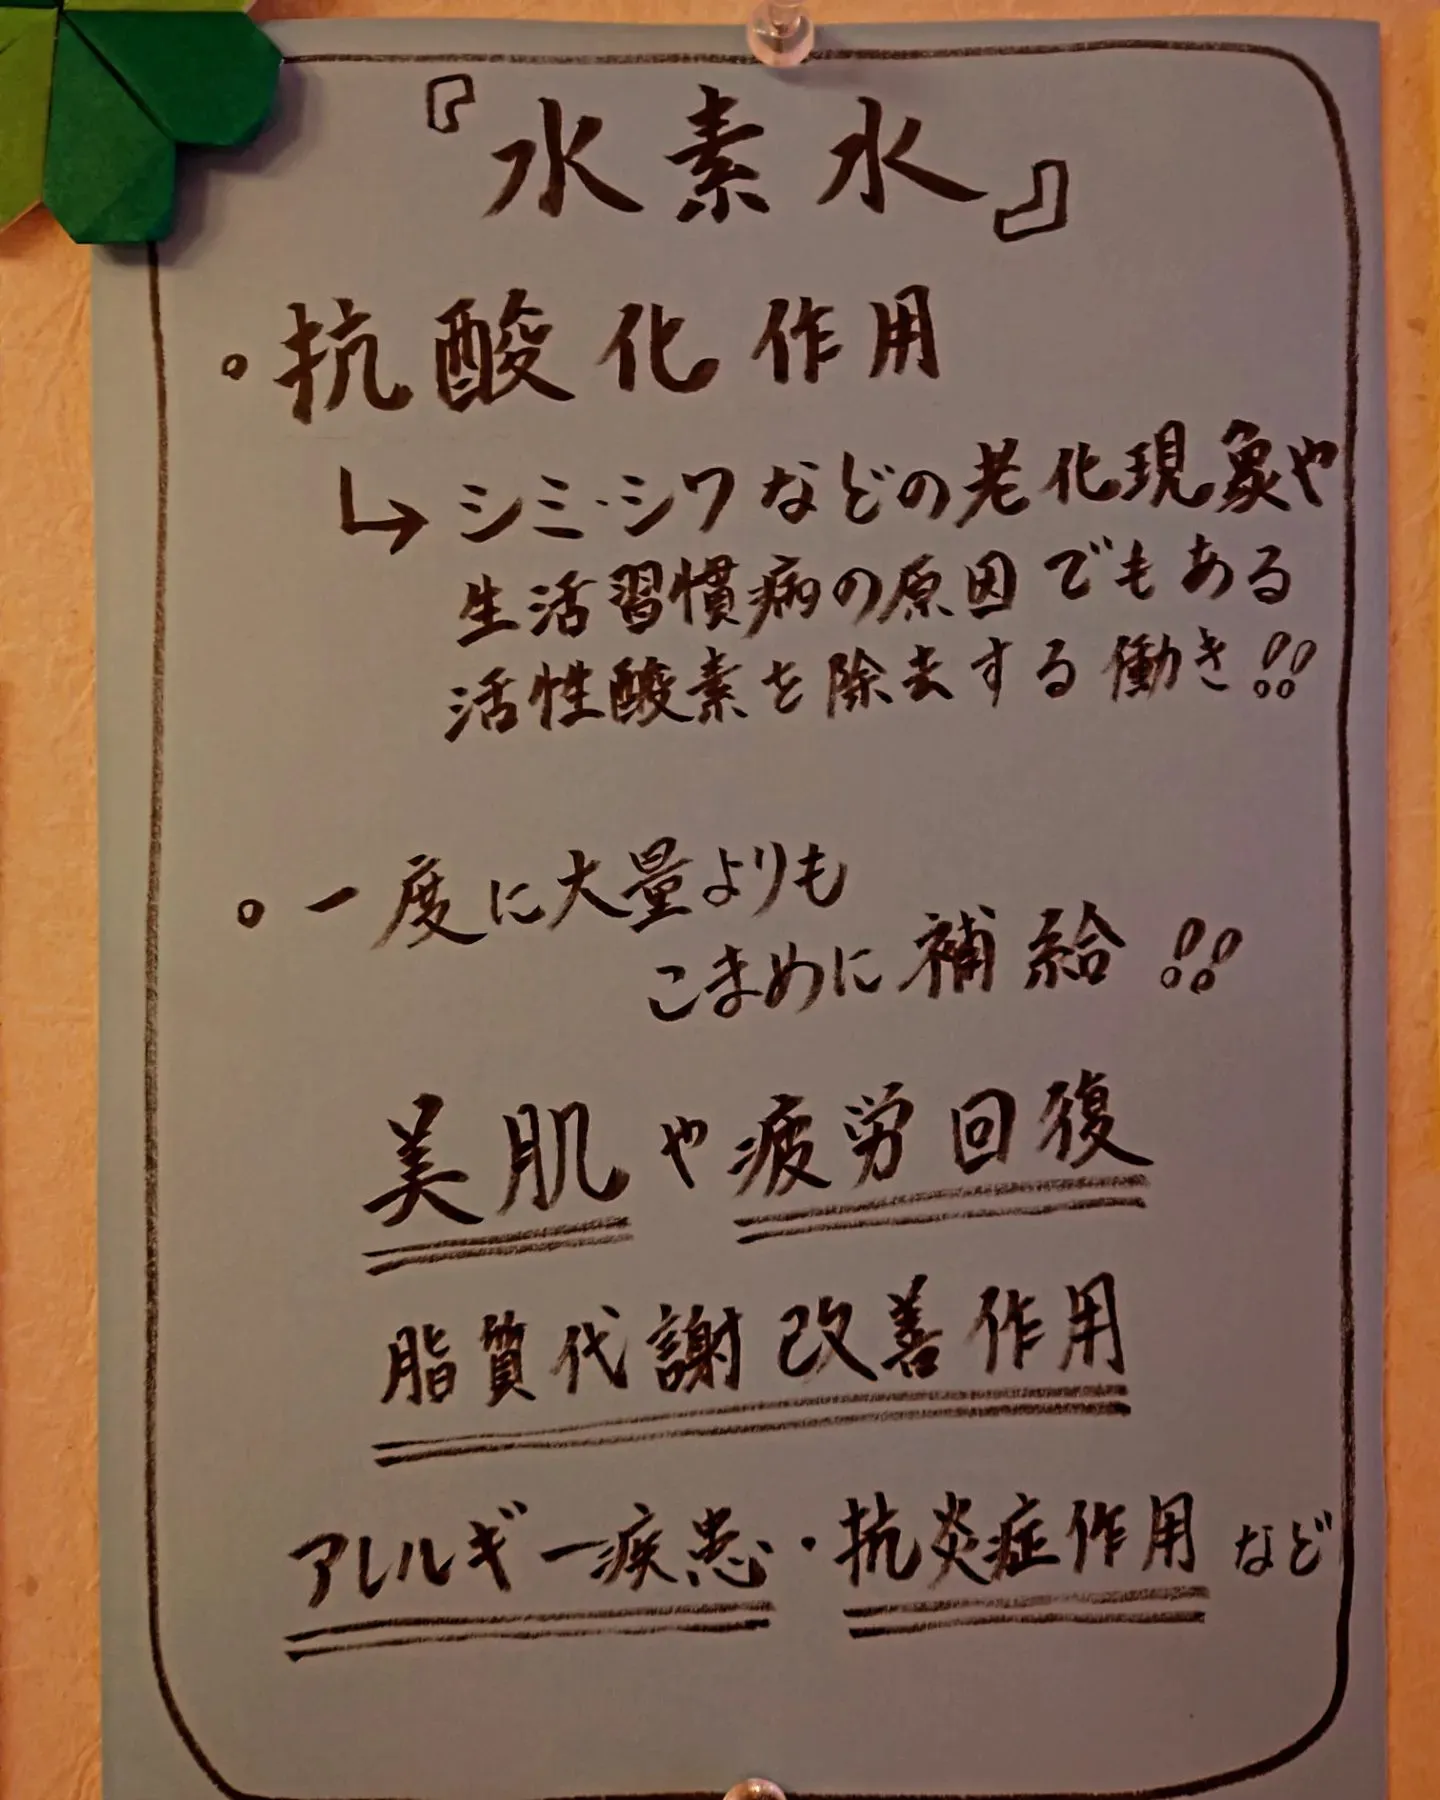 『水素水』
。抗酸化作用
↳シミ・シワなどの老化現象や
生活習慣病の原因でもある
活性酸素を除去する働き!!
。一度に大量よりも
こまめに補給!!
美肌や疲労回復
脂質代謝改善作用
アレルギー疾患・抗炎症作用など